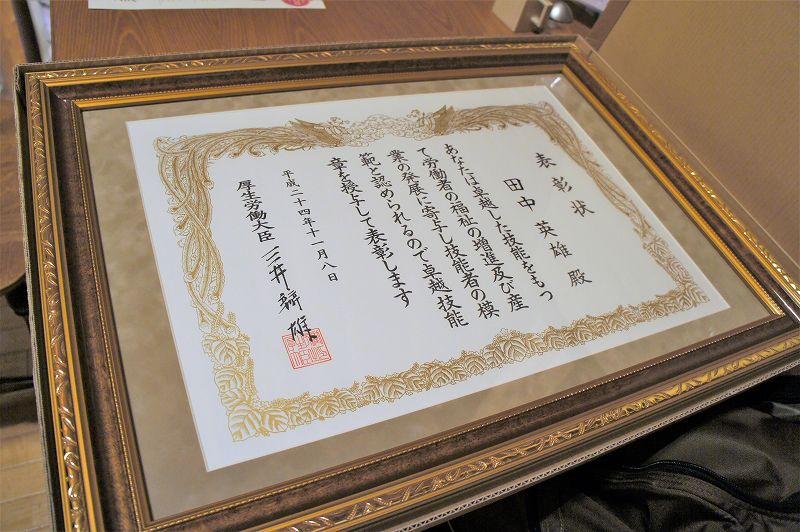 表彰状
田中英雄殿
あなたは卓越した技能をもつ
て労働者の福祉の増進及び産
業の発展に寄予し技能者の模
範と認められるので卓越技能
章を授与して表彰します
平成二十四年十一月八日
厚生労働大臣 三井辨雄